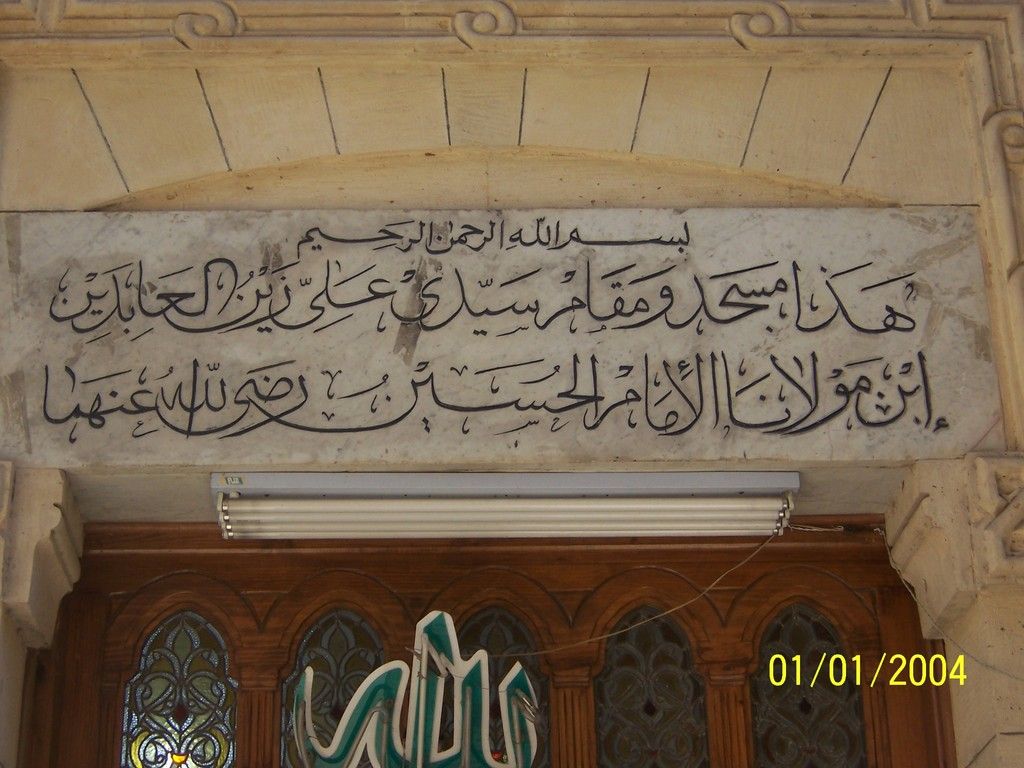 بسم الله الرحمن الرحيم
هَذَا مسجد ومَقَامْ سَيّدىْ عَلِىّ زَيْنُ العَابِدَيْن
إبْن مَوْلانَا الإمَامْ الحُسَيْن رضَى اللهُ عنهما
الله
01/01/2004